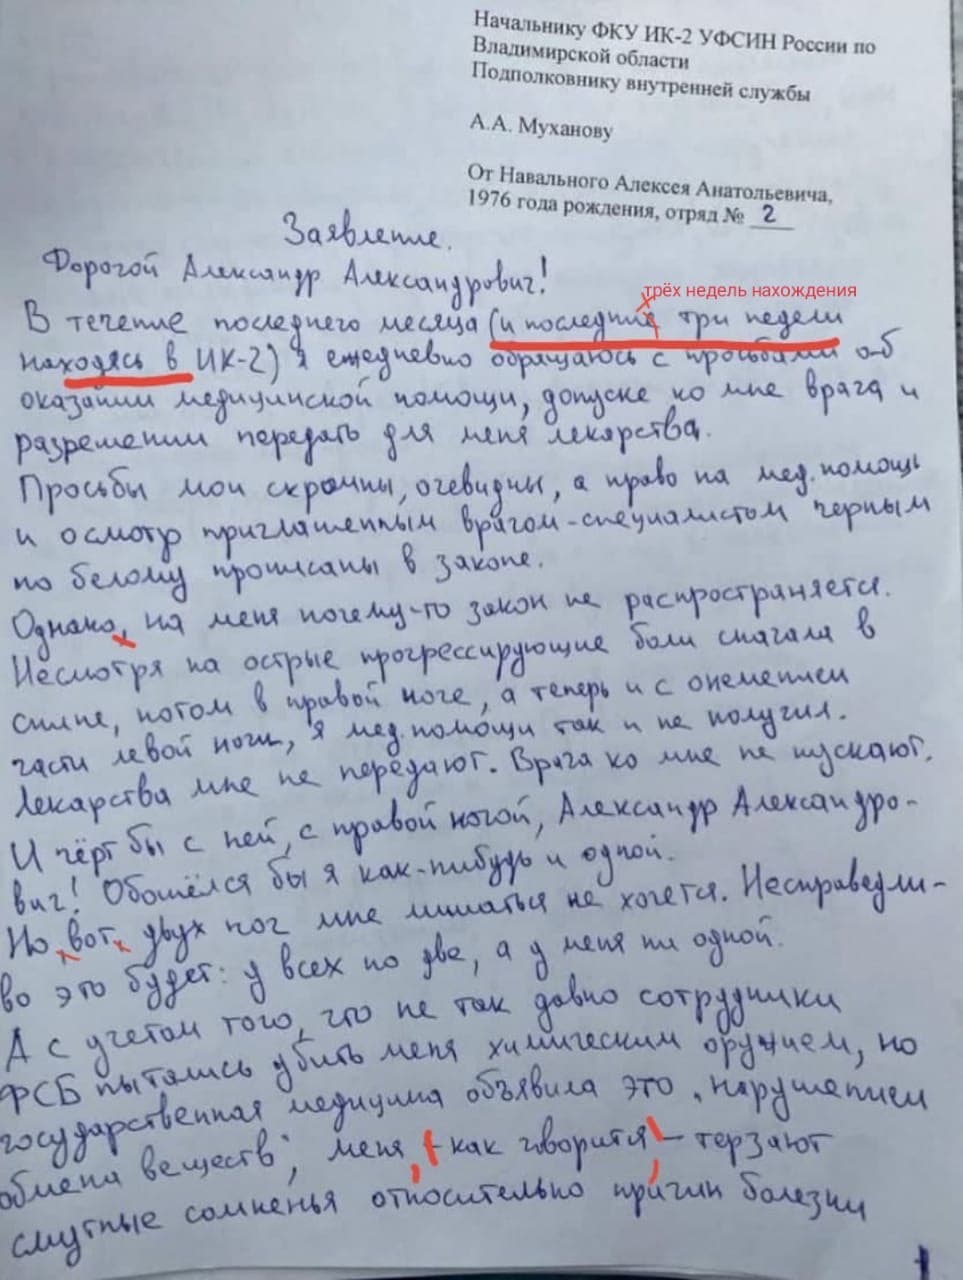 Начальнику ФКУ ИК-2 УФСИН России по
Владимирской области
Подполковнику внутренней службы
А.А. Муханову
От Навального Алексея Анатольевича,
1976 года рождения, отряд № 2
Заявление.
Дорогой Александр Александрович!
трёх недель нахождения
В течение последнего месяца (и последние три недели
находясь в ИК-2) я ежедневно обращаюсь с просьбами об
оказании медицинской помощи, допуске ко мне врача и
разрешении передать для меня лекарства.
Просьбы мои скромны, очевидны, а право на мед. помощь
и осмотр приглашенным врачом-специалистом черным
по белому прописаны в законе.
Однако, на меня почему-то закон не распространяется.
Несмотря на острые прогрессирующие боли сначала в
спине, потом в правой ноге, а теперь и с онемением
части левой ноги, я мед. помощи так и не получил.
Лекарства мне не передают. Врача ко мне не пускают.
И чёрт бы с ней, с правой ногой, Александр Александро-
вич! Обошёлся бы я как-нибудь и одной.
Но вот двух ног мне лишаться не хочется. Несправедли-
во это будет: у всех по две, а у меня ни одной.
А с учетом того, что не так давно сотрудники
ФСБ пытались убить меня химическим оружием, но
государственная медицина объявила это "нарушением
обмена веществ", меня, - как говорится, - терзают
смутные сомненья относительно причин болезни
1